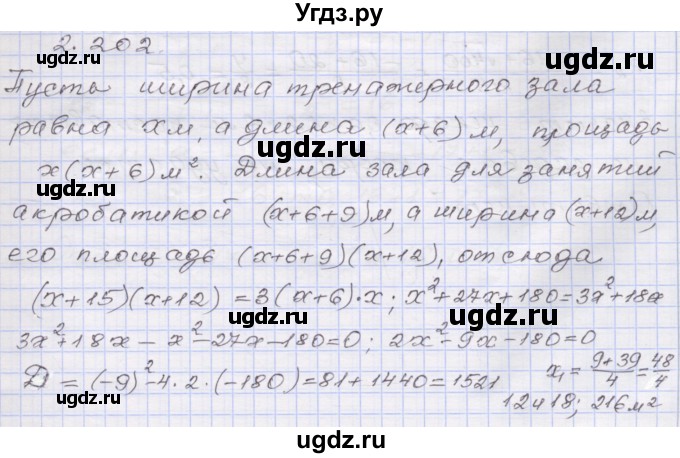 Угдз.ру
2.202.
Пусть ширина тренажерного зала
равна x м, а длина (x+6) м, площадь
x(x+6) м². Длина зала для занятий
акробатикой (x+6+9) м, а ширина (x+12) м,
его площадь (x+6+9)(x+12), отсюда
(x+15)(x+12) = 3(x+6)·x; x²+27x+180=3x²+18x
3x²+18x-x²-27x-180=0; 2x²-9x-180=0
D = (-9)²-4·2·(-180)=81+1440=1521 x₁=(9+39)/4=48/4
12 и 18; 216 м²
ugdz.ru
ugdz.ru
ugdz.ru
ugdz.ru
ugdz.ru
ugdz.ru
ugdz.ru
ugdz.ru
ugdz.ru